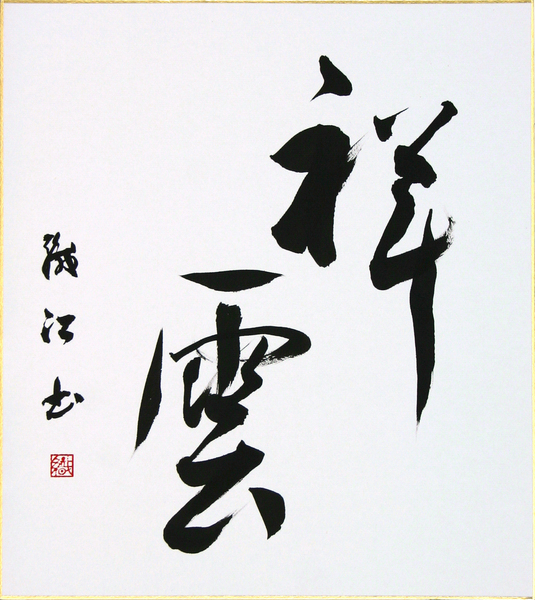 祥雲
江書